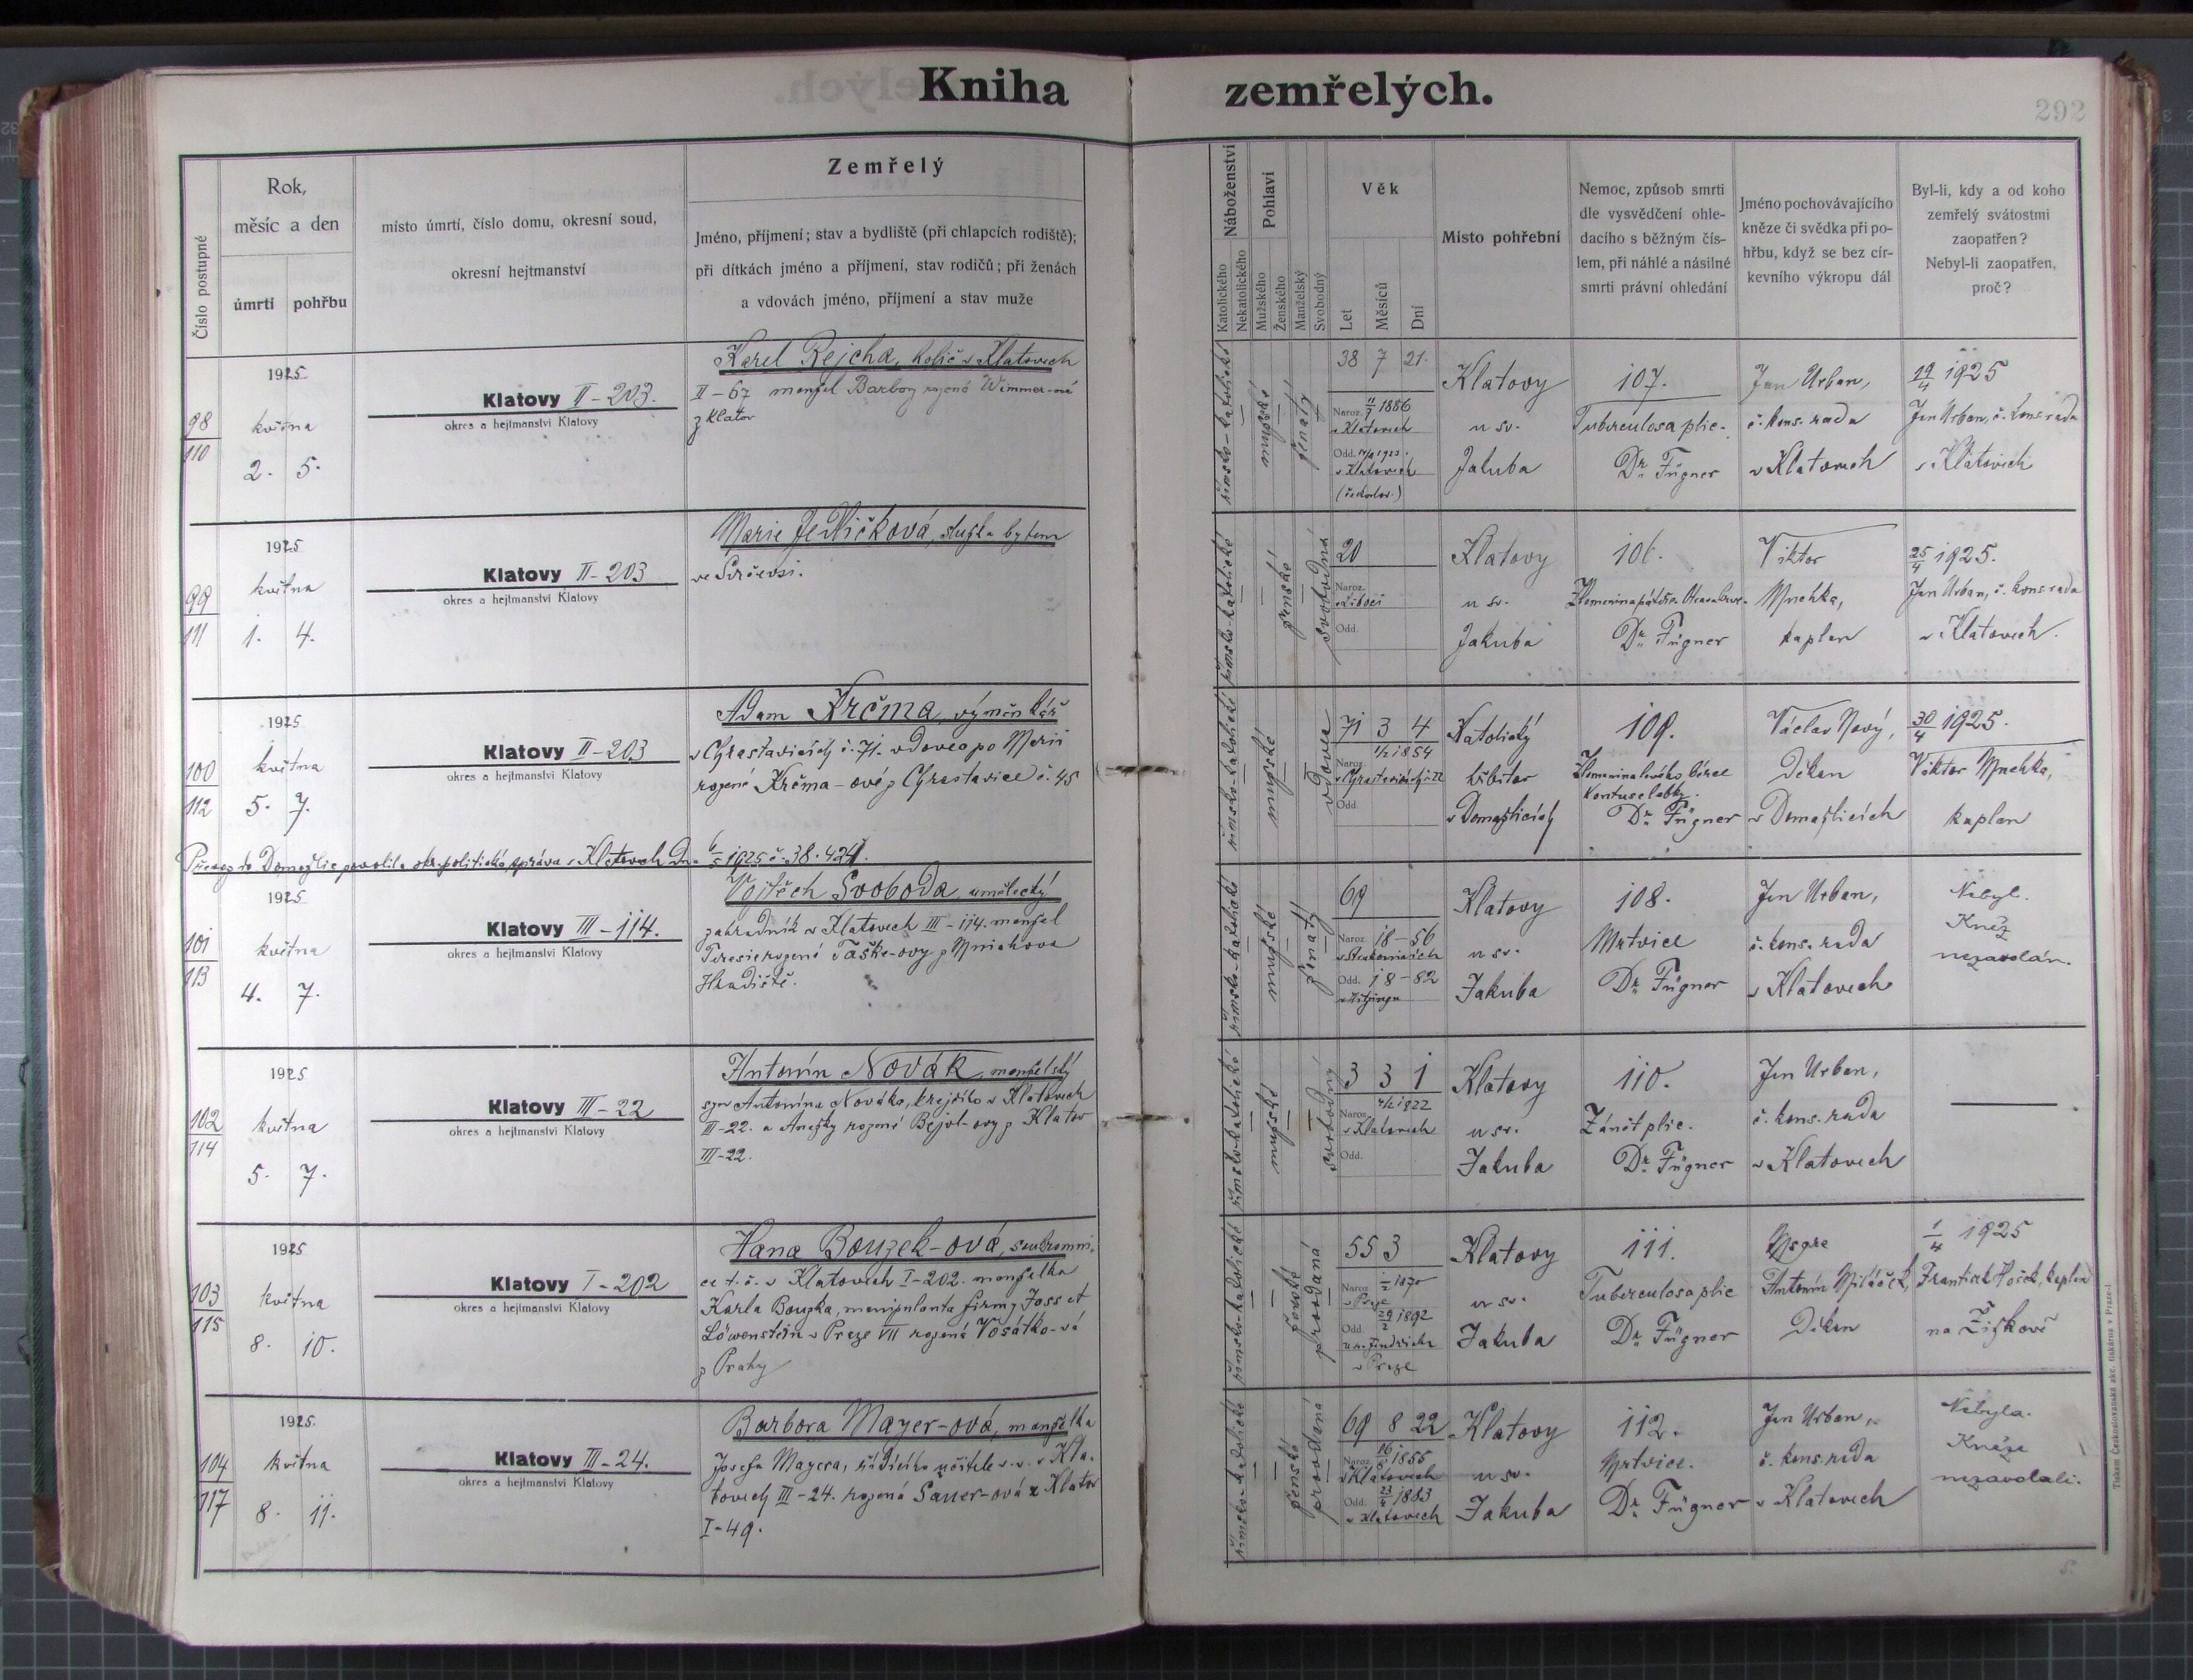 Kniha zemřelých.
292
Číslo postupné
Rok,
měsíc a den
úmrtí
pohřbu
místo úmrtí, číslo domu, okresní soud,
okresní hejtmanství
Zemřelý
Jméno, příjmení; stav a bydliště (při chlapcích rodiště);
při dítkách jméno a příjmení, stav rodičů; při ženách
a vdovách jméno, příjmení a stav muže
Náboženství
Katolického
Nekatolického
Pohlaví
Mužského
Ženského
Manželský
Svobodný
Věk
Let
Měsíců
Dní
Místo pohřební
Nemoc, způsob smrti
dle vysvědčení ohle-
dacího s běžným čís-
lem, při náhlé a násilné
smrti právní ohledání
Jméno pochovávajícího
kněze či svědka při po-
hřbu, když se bez cír-
kevního výkropu dál
Byl-li, kdy a od koho
zemřelý svátostmi
zaopatřen?
Nebyl-li zaopatřen,
proč?
98
110
1925
května
2. 5.
Klatovy II-203.
okres a hejtmanství Klatovy
Karel Rejcha, holič v Klatovech
II-67 manžel Barbory rozené Wimmer-né
z Klatov
římsko-katolické
mužské
ženatý
38 7 21.
Naroz. 11/9 1886
v Klatovech
Odd.
v Klatovech
Klatovy
u sv.
Jakuba
107.
Tuberculosa plic.
Dr. Fügner
Jan Urban,
č. kons. rada
v Klatovech
19/4 1925
Jan Urban, č. kons. rada
v Klatovech
99
111
1925
května
1. 4.
Klatovy II-203
okres a hejtmanství Klatovy
Marie Jedličková, služka bytem
ve Svrčevsi.
římsko-katolické
ženské
svobodná
20
Naroz.
Odd.
Klatovy
u sv.
Jakuba
106.
Dr. Fügner
Viktor
Mnehka,
kaplan
25/4 1925.
Jan Urban, č. kons. rada
v Klatovech.
100
112
1925
května
5. 7.
Klatovy II-203
okres a hejtmanství Klatovy
Adam Krčma, výměnkář
v Chrastavicích č. 71. vdovec po Marii
rozené Krčma-ové z Chrastavice č. 45
římsko-katolické
mužské
vdovec
71 3 4
1/2 1854
Naroz.
Odd.
Katolický
hřbitov
v Domažlicích
109.
Kontuse lebky.
Dr. Fügner
Václav Nový,
děkan
v Domažlicích
30/4 1925.
Viktor Mnehka,
kaplan
Převoz do Domažlic povolila okr. politická správa v Klatovech dne 6/5 1925 č. 38.424.
101
113
1925
května
4. 7.
Klatovy III-114.
okres a hejtmanství Klatovy
Vojtěch Svoboda, umělecký
zahradník v Klatovech III-114. manžel
Teresie rozené Taške-ovy z Mnichova
Hradiště.
římsko-katolické
mužské
ženatý
69
Naroz. 18-56
Odd. 18-82
Klatovy
u sv.
Jakuba
108.
Mrtvice
Dr. Fügner
Jan Urban,
č. kons. rada
v Klatovech
Nebyl.
Kněz
nezavolán.
102
114
1925
května
5. 7.
Klatovy III-22
okres a hejtmanství Klatovy
Antonín Novák, manželský
syn Antonína Nováka, krejčího v Klatovech
III-22. a Anežky rozené Bejvl-ovy z Klatov
III-22.
římsko-katolické
mužské
svobodný
3 3 1
4/2 1922
Naroz.
v Klatovech
Odd.
Klatovy
u sv.
Jakuba
110.
Zánět plic.
Dr. Fügner
Jan Urban,
č. kons. rada
v Klatovech
103
115
1925
května
8. 10.
Klatovy I-202
okres a hejtmanství Klatovy
Hana Bouzek-ová, soukromni-
ce t. č. v Klatovech I-202. manželka
Karla Bouzka, manipulanta firmy Joss et
Löwenstein v Praze VII rozená Vosátko-vá
z Prahy
římsko-katolické
ženské
provdaná
55 3
Naroz. 1870
v Praze
Odd. 1892
u sv. Jindřicha
v Praze
Klatovy
u sv.
Jakuba
111.
Tuberculosa plic
Dr. Fügner
Msgre
Antonín Miláček,
děkan
1/4 1925
František Hošek, kaplan
na Žižkově
104
117
1925.
května
8. 11.
Klatovy III-24.
okres a hejtmanství Klatovy
Barbora Mayer-ová, manželka
Josefa Mayera, řídícího učitele v. v. v Kla-
tovech III-24. rozená Sauer-ová z Klatov
I-49.
římsko-katolické
ženské
provdaná
69 8 22
Naroz. 16/8 1855
v Klatovech
Odd. 1883
v Klatovech
Klatovy
u sv.
Jakuba
112.
Mrtvice.
Dr. Fügner
Jan Urban,
č. kons. rada
v Klatovech
Nebyla.
Kněze
nezavolali.
Tiskem Českoslovanské akc. tiskárny v Praze-I